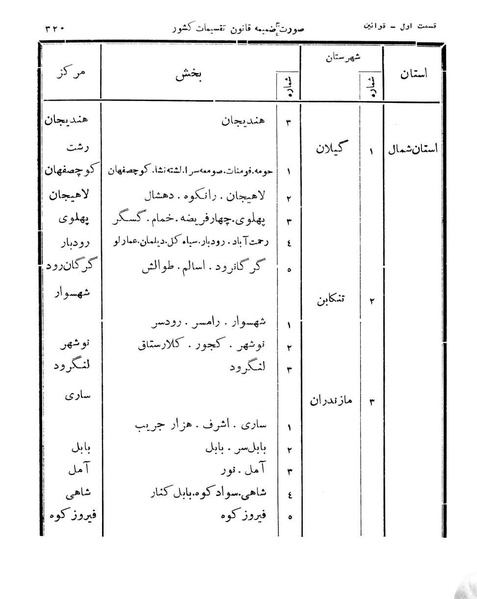 قسمت اول – قوانین صورت ضمیمه قانون تقسیمات کشور ۳۲۰
استان شماره شهرستان شماره بخش مرکز
۳ هندیجان هندیجان
استان شمال ۱ گیلان رشت
۱ حومه.فومنات.صومعه سرا.لشته نشا.کوچصفهان کوچصفهان
۲ لاهیجان . رانکوه . دهشال لاهیجان
۳ پهلوی.چهارفریضه.خمام.گسگر پهلوی
٤ رحمت آباد.رودبار.سیاه کل.دیلمان.عمارلو رودبار
٥ گرگانرود . اسالم . طوالش گرگان رود
۲ تنکابن شهسوار
۱ شهسوار . رامسر . رودسر
۲ نوشهر . کجور . کلارستاق نوشهر
۳ لنگرود لنگرود
۳ مازندران ساری
۱ ساری . اشرف . هزار جریب
۲ بابل سر . بابل بابل
۳ آمل . نور آمل
٤ شاهی.سواد کوه.بابل کنار شاهی
٥ فیروز کوه فیروز کوه